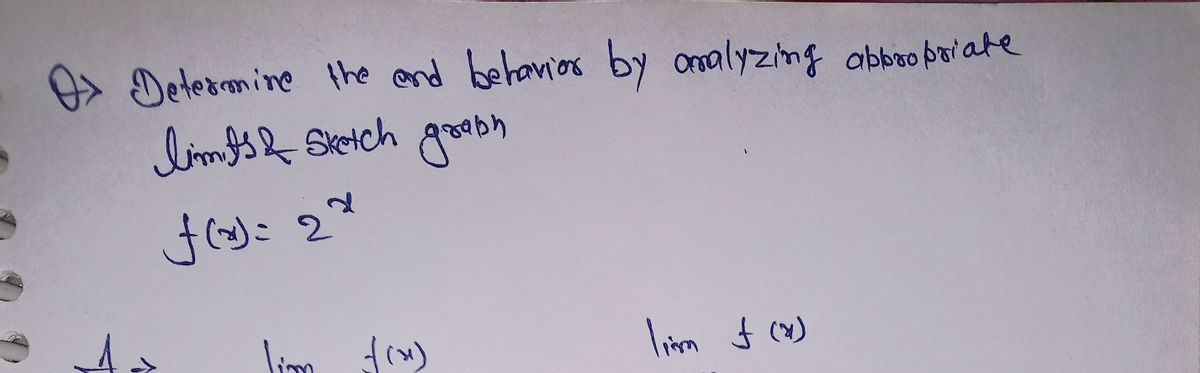 Q> Determine the end behavior by analyzing appropriate
limits & Sketch graph
f(x) = 2^x
A → lim f(x) lim f(x)